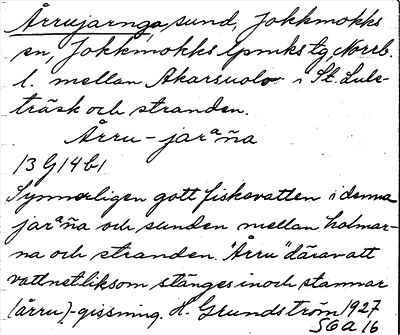 Årrujarnga, sund, Jokkmokks
sn, Jokkmokks lpmks tg, Norrb.
l. mellan Akarsuolo i St. Lule-
träsk och stranden.
Årru-jarªŋa
13 G 14 b 1
Synnerligen gott fiskevatten i denna
jarªŋa och sunden mellan holmar-
na och stranden. "Årru" därav att
vattnet liksom stänges in och stannar
(årru)-gissning. H. Grundström 1927
56 a 16